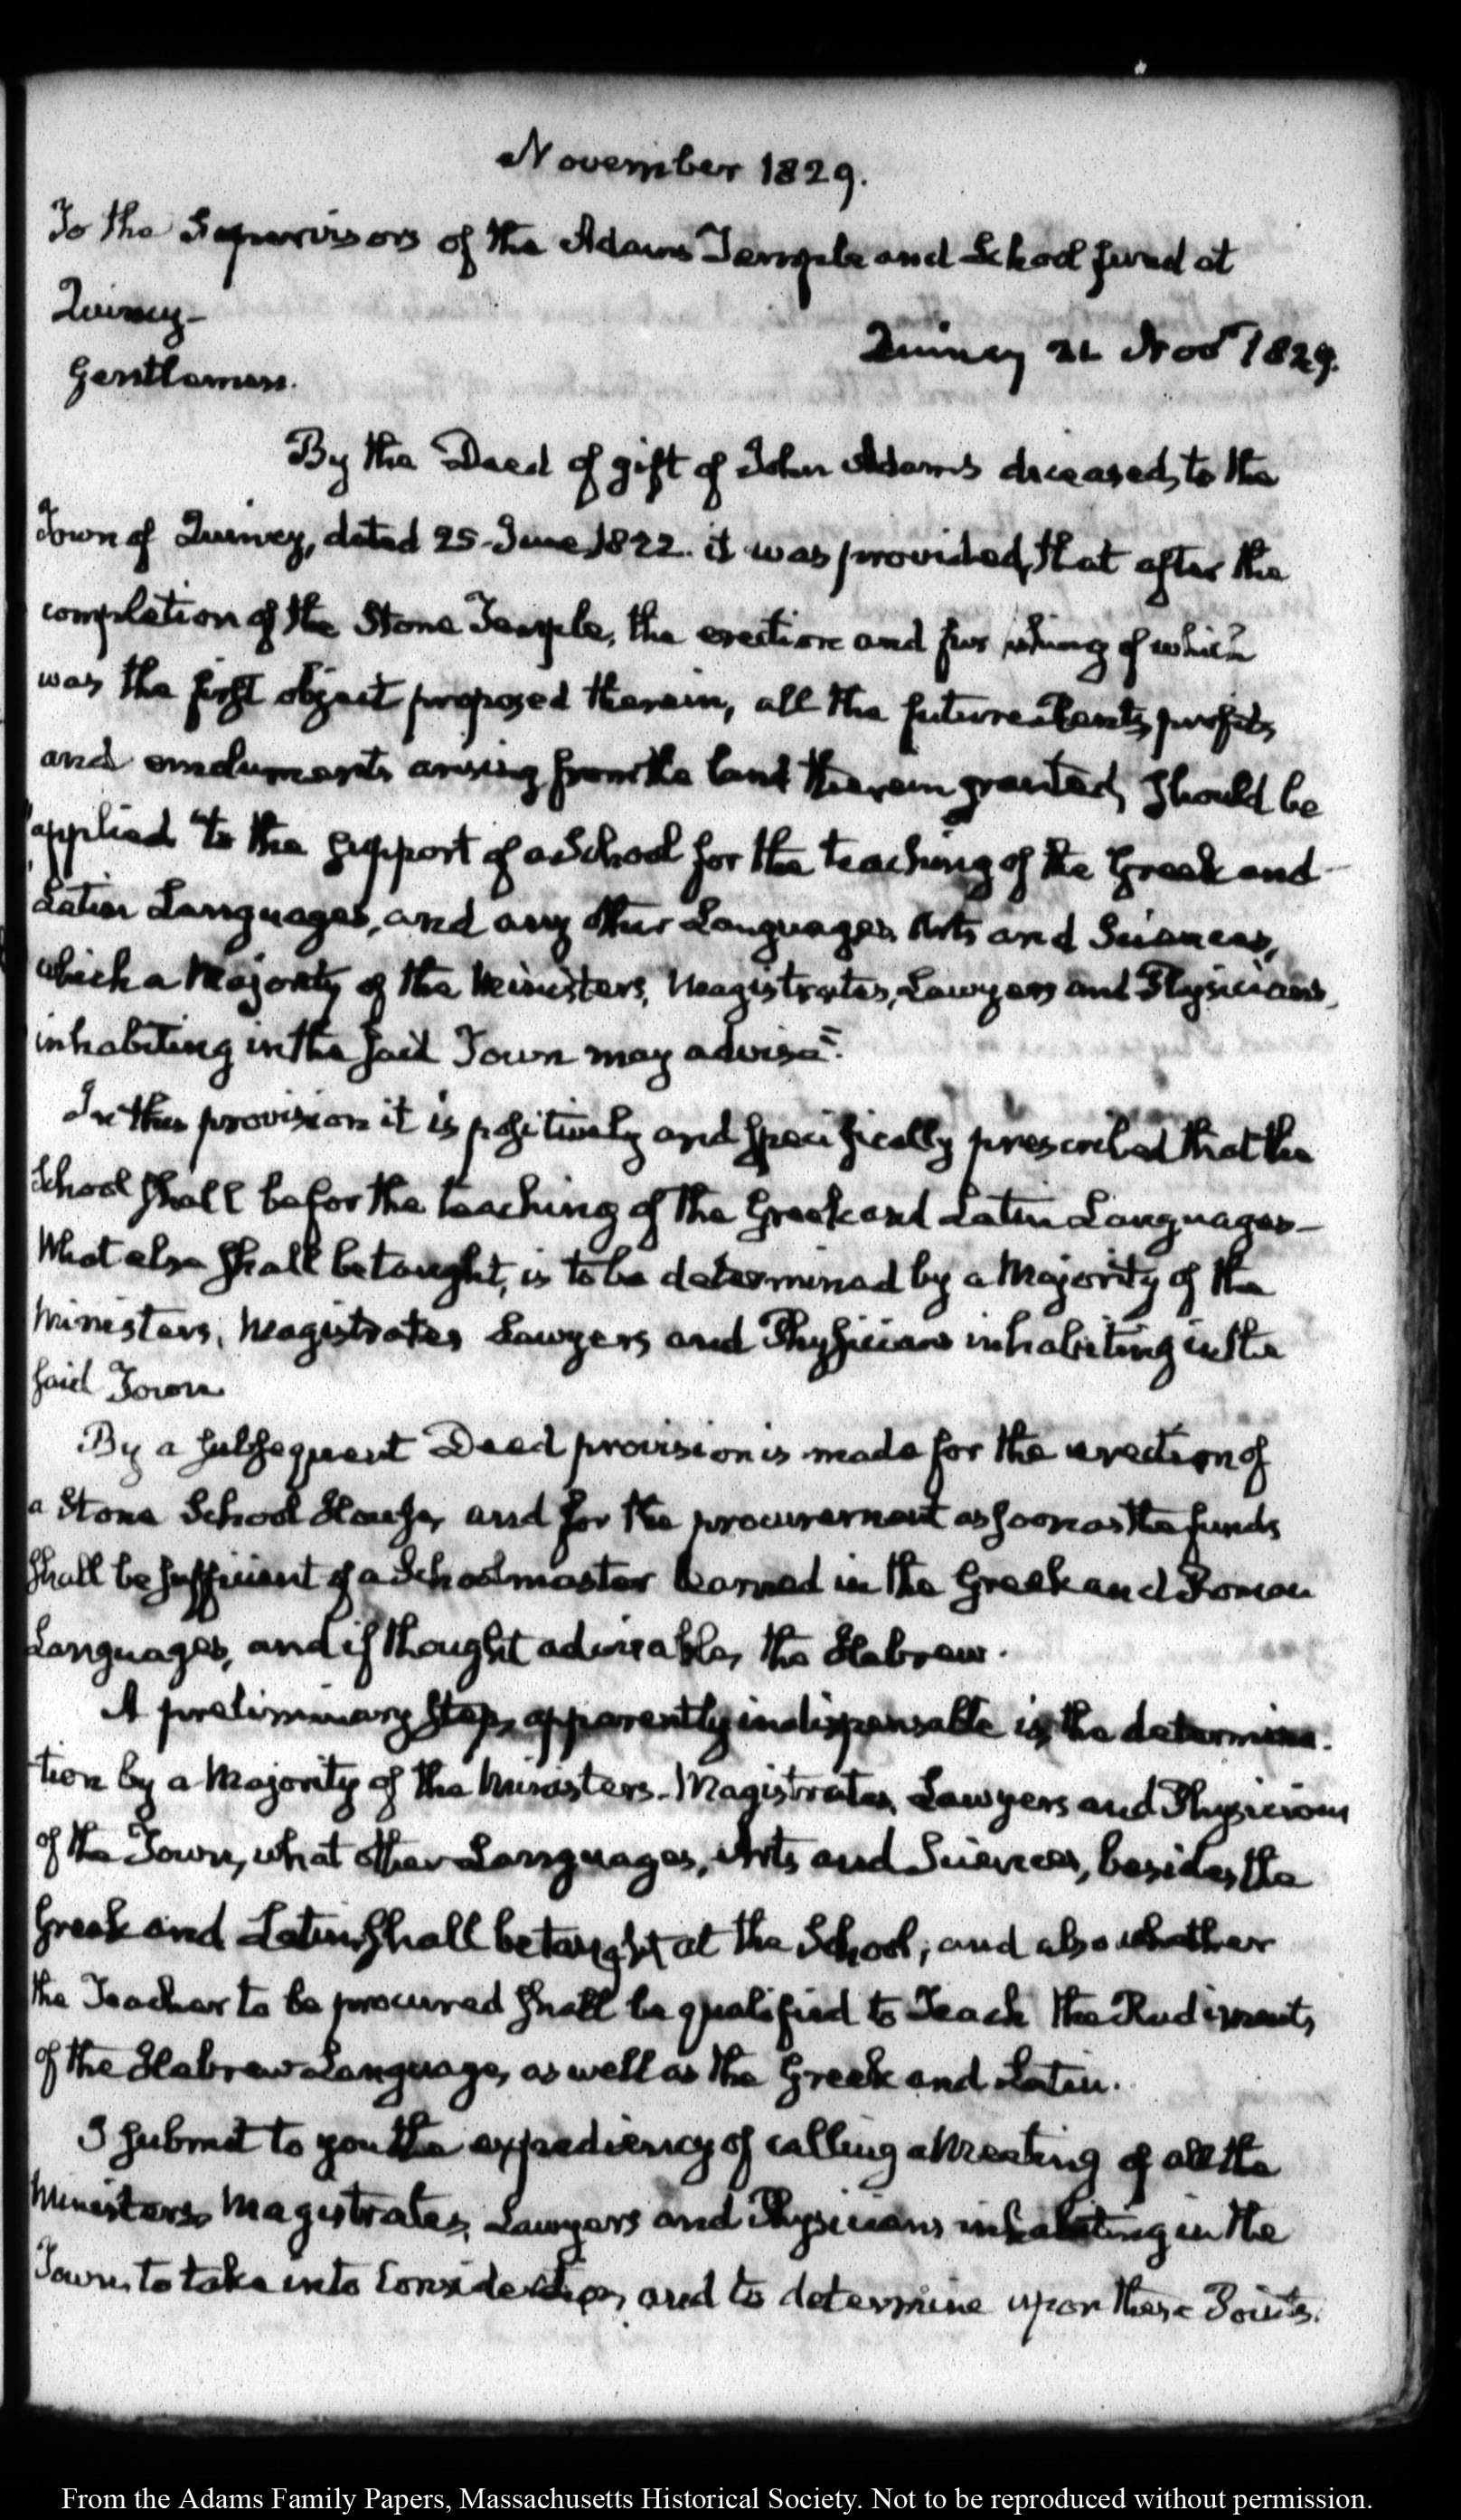 November 1829.
To the Supervisors of the Adams Temple and School fund at
Quincy—
Quincy 21 Novr 1829.
Gentlemen.
By the Deed of gift of John Adams deceased, to the
Town of Quincy, dated 25 June 1822. it was provided, that after the
completion of the Stone Temple, the erection and furnishing of which
was the first object proposed therein, all the future Rents, profits,
and emoluments arising from the land therein granted, should be
applied "to the support of a School for the teaching of the Greek and
Latin Languages, and any other Languages, Arts and Sciences,
which a Majority of the Ministers, Magistrates, Lawyers and Physicians,
inhabiting in the said Town may advise".
In this provision it is positively and specifically prescribed that the
School shall be for the teaching of the Greek and Latin Languages—
What else shall be taught, is to be determined by a Majority of the
Ministers, Magistrates Lawyers and Physicians inhabiting in the
said Town.
By a subsequent Deed provision is made for the erection of
a Stone School House, and for the procurement as soon as the funds
shall be sufficient of a Schoolmaster learned in the Greek and Roman
Languages, and if thought adviseable, the Hebrew.
A preliminary step, apparently indispensable is, the determina-
tion by a Majority of the Ministers, Magistrates, Lawyers and Physicians
of the Town, what other Languages, Arts and Sciences, besides the
Greek and Latin, shall be taught at the School; and also whether
the Teacher to be procured shall be qualified to Teach the Rudiments
of the Hebrew Language, as well as the Greek and Latin.
I submit to you the expediency of calling a Meeting of all the
Ministers, Magistrates, Lawyers and Physicians inhabiting in the
Town, to take into Consideration, and to determine upon these Points.
From the Adams Family Papers, Massachusetts Historical Society. Not to be reproduced without permission.